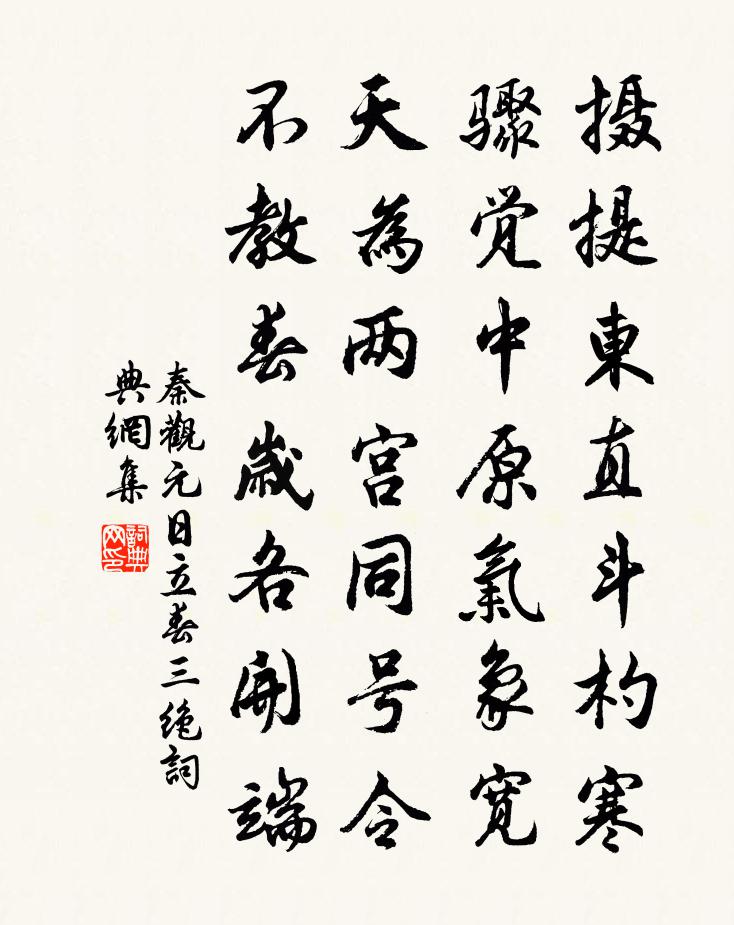 摄提東直斗杓寒
驟觉中原氣象寬
天為两宫同号令
不教春歲各開端
秦觀元日立春三绝詞
典網集
詞典
网印